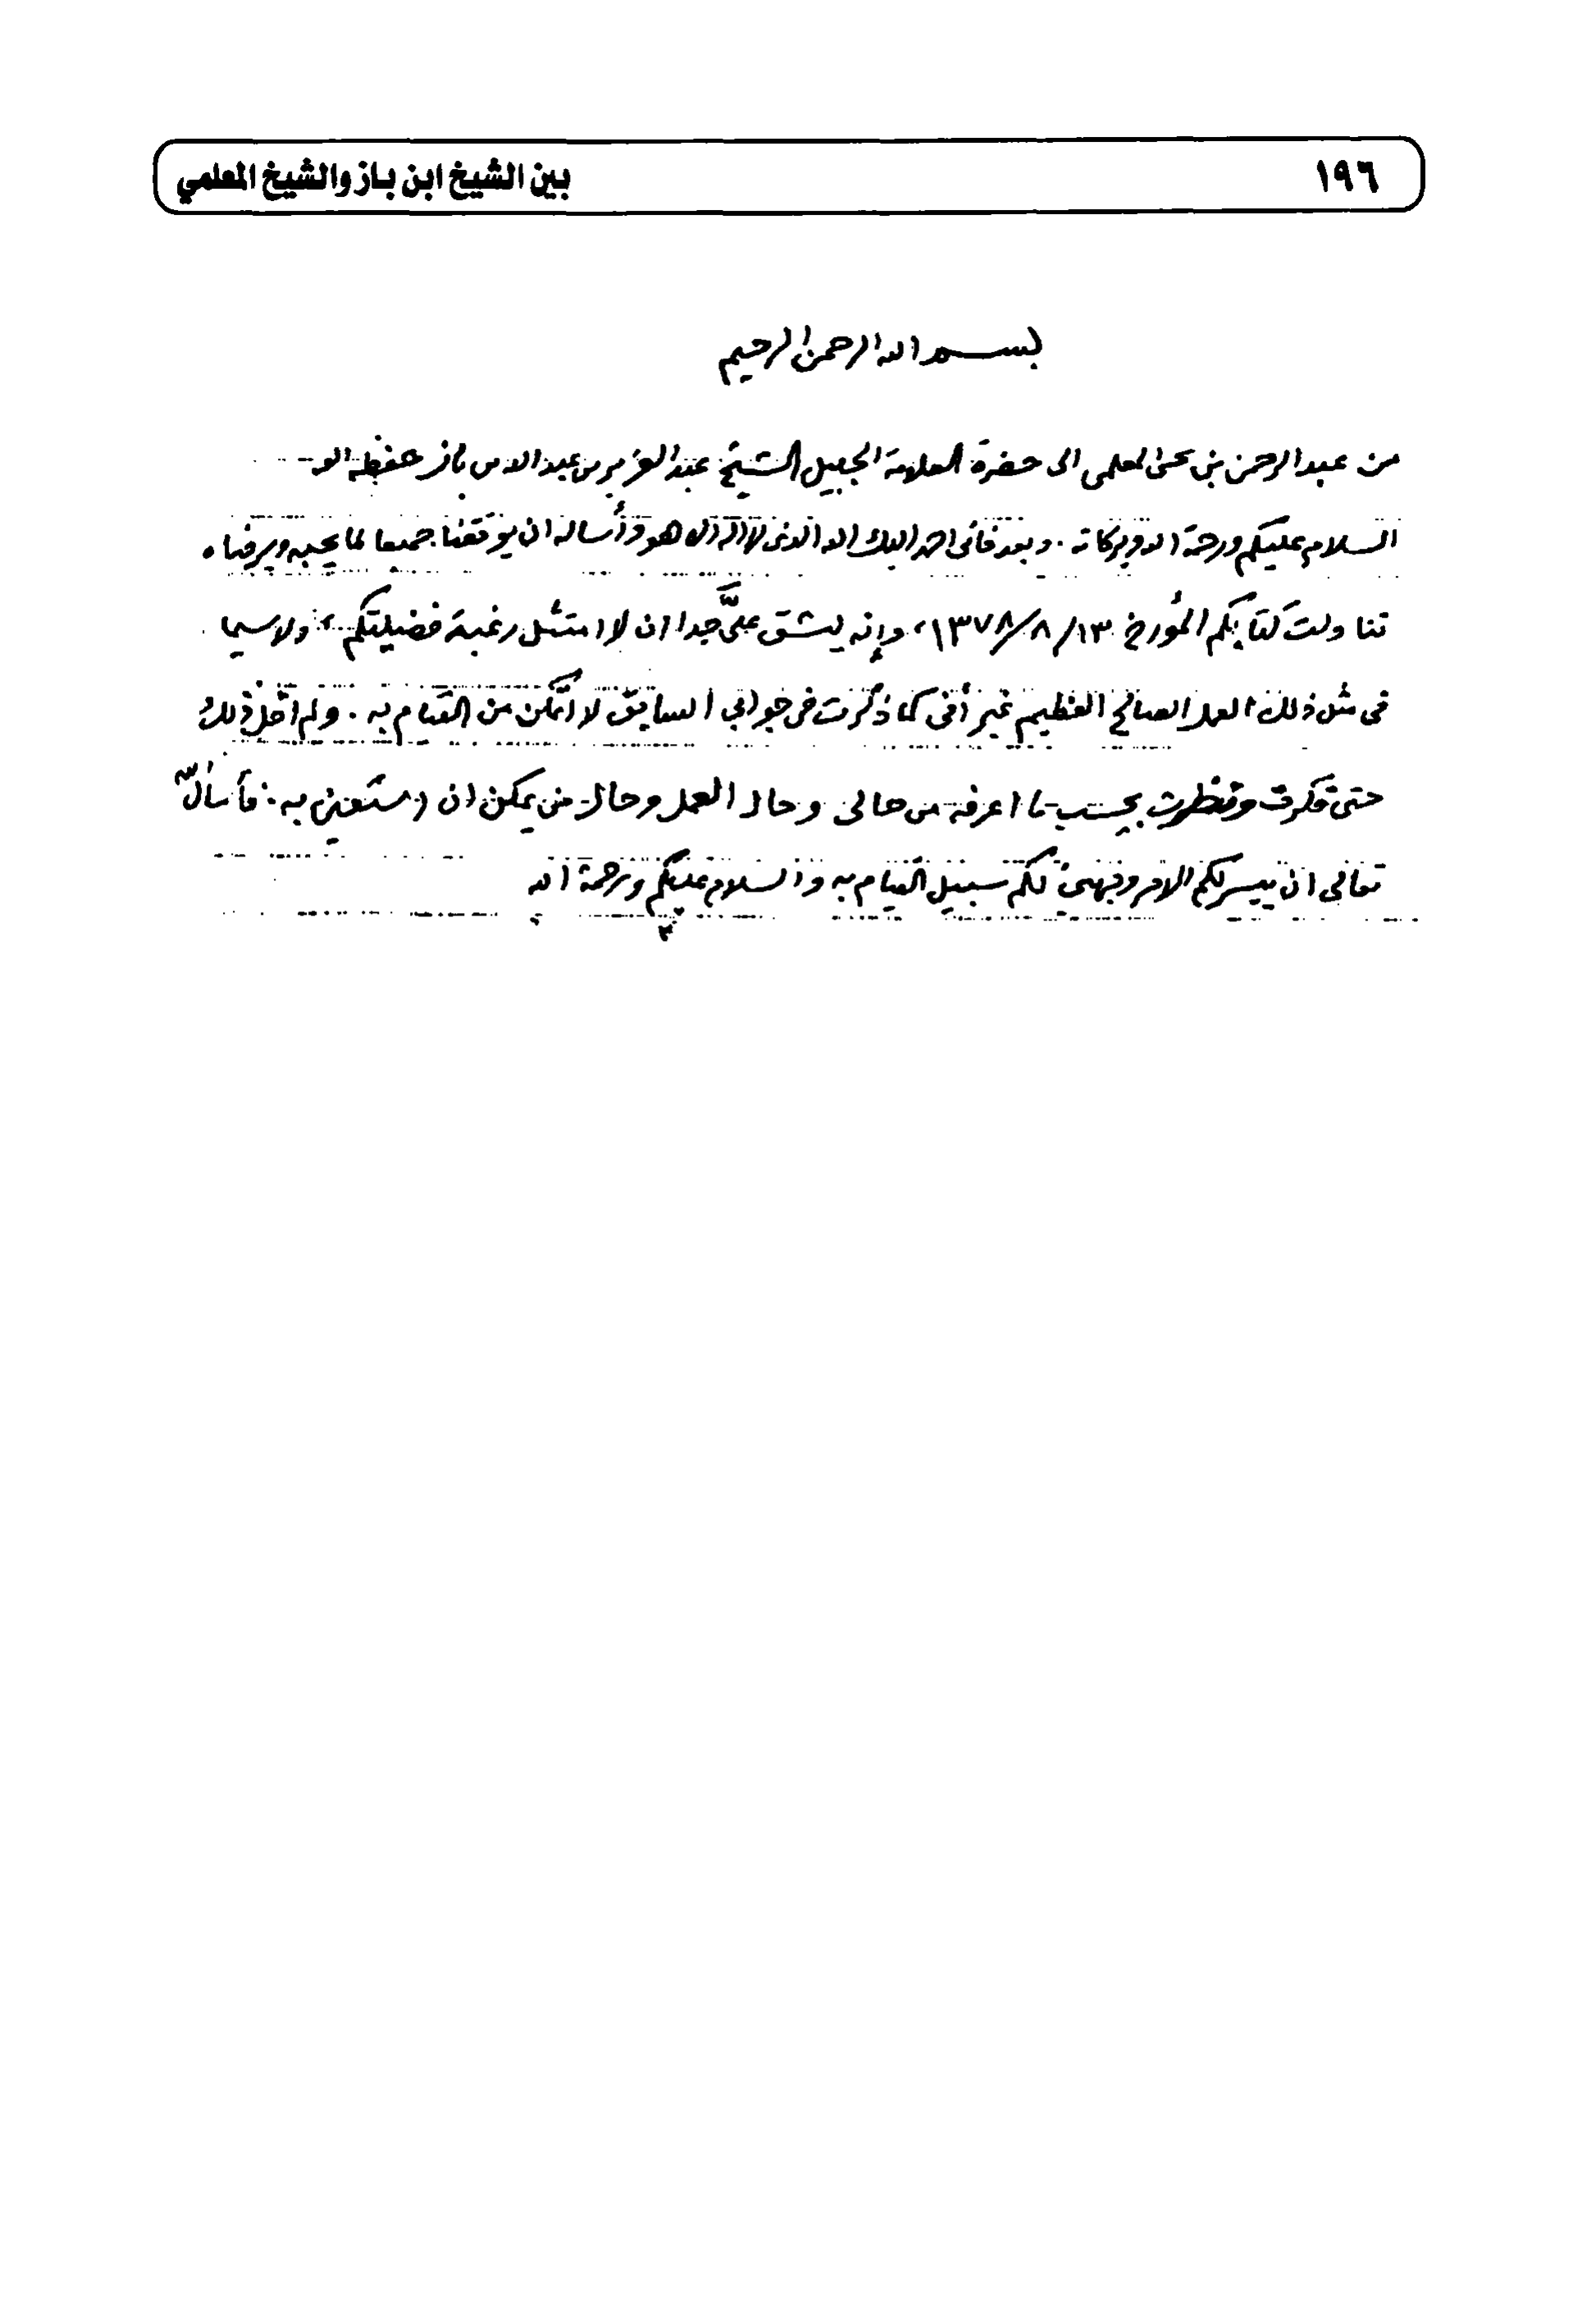 ١٩٦
بين الشيخ ابن باز والشيخ المعلمي
بسم الله الرحمن الرحيم
من عبد الرحمن بن يحيى المعلمي الى حضرة العلامة الجليل الشيخ عبد العزيز بن عبد الله بن باز حفظه الله
السلام عليكم ورحمة الله وبركاته . وبعد فأني احمد اليك الله الذي لا اله الا هو وأسأله ان يوفقنا جميعا لما يحبه ويرضاه
تناولت كتابكم المؤرخ ١٣/ ٨/ ١٣٧٨، وإنه ليشق عليَّ جدا ان لا امتثل رغبة فضيلتكم، ولاسيما
في مثل ذلك العمل الصالح العظيم غير أني كما ذكرت في جوابي السابق لا اتمكن من القيام به . ولم اقل ذلك
حتى فكرت ونظرت بحسب ما اعرفه من حالي وحال العمل وحال من يمكن ان استعين به . فأسأل الله
تعالى ان ييسر لكم الامر ويهيئ لكم سبيل القيام به والسلام عليكم ورحمة الله